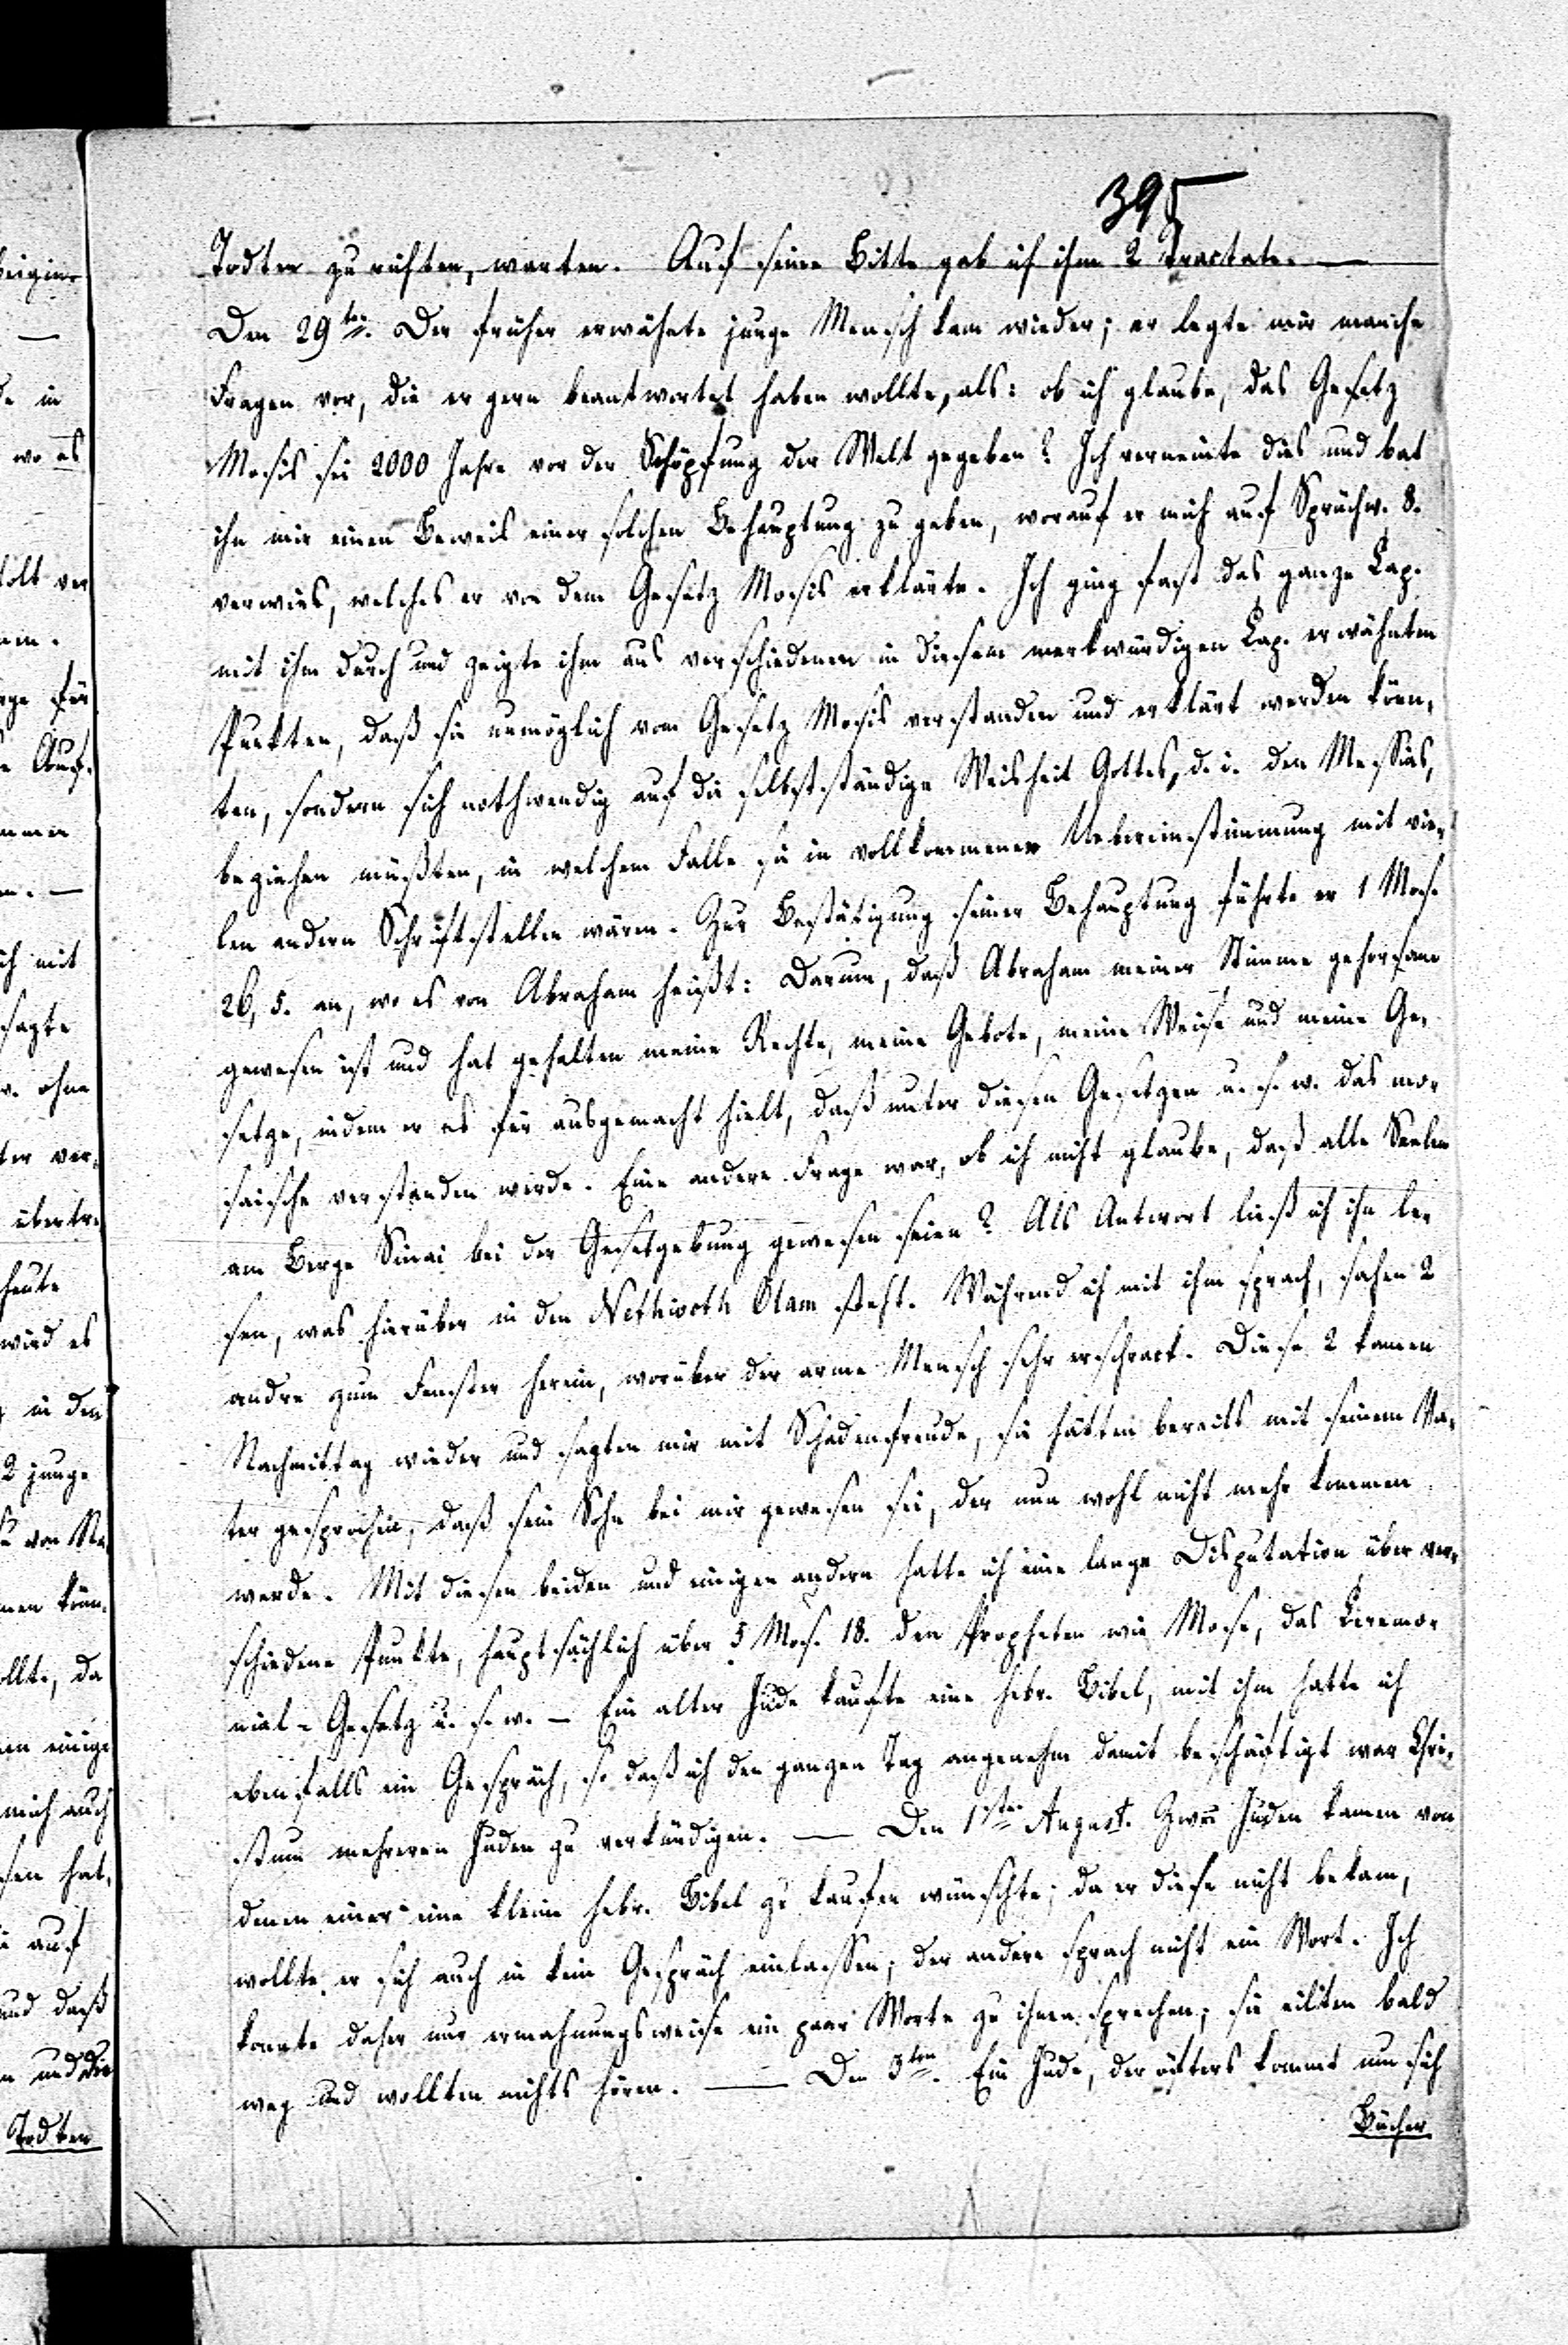 395
Todten zu richten, warten. Auf seine Bitte gab ich ihm 2 Tractate. —
Den 29ten. Der früher erwähnte junge Mensch kam wieder; er legte mir manche
Fragen vor, die er gern beantwortet haben wollte, als: ob ich glaube, das Gesetz
Mosis sei 2000 Jahre vor der Schöpfung der Welt gegeben? Ich verneinte dies und bat
ihn mir einen Beweis einer solchen Behauptung zu geben, worauf er mich auf Sprüchw. 8.
verwies, welches er von dem Gesetz Mosis erklärte. Ich ging fast das ganze Cap.
mit ihm durch und zeigte ihm aus verschiedenen in diesem merkwürdigen Cap. erwähnten
Punkten, daß sie unmöglich vom Gesetz Mosis verstanden und erklärt werden könn-
ten, sondern sich nothwendig auf die selbstständige Weisheit Gottes, d. i. den Messias,
beziehen müßten, in welchem Falle sie in vollkommener Uebereinstimmung mit vie-
len andern Schriftstellen wären. Zur Bestätigung seiner Behauptung führte er 1 Mos.
26, 5. an, wo es von Abraham heißt: Darum, daß Abraham meiner Stimme gehorsam
gewesen ist und hat gehalten meine Rechte, meine Gebote, meine Weise und meine Ge-
setze, indem er es für ausgemacht hielt, daß unter diesen Gesetzen u. s. w. das mo-
saische verstanden werde. Eine andere Frage war, ob ich nicht glaube, daß alle Seelen
am Berge Sinai bei der Gesetzgebung gewesen seien? Als Antwort ließ ich ihn le-
sen, was hierüber in den Nethivoth Olam steht. Während ich mit ihm sprach, sahen 2
andre zum Fenster herein, worüber der arme Mensch sehr erschrack. Diese 2 kamen
Nachmittag wieder und sagten mir mit Schadenfreude, sie hätten bereits mit seinem Va-
ter gesprochen, daß sein Sohn bei mir gewesen sei, der nun wohl nicht mehr kommen
werde. Mit diesen beiden und einigen andern hatte ich eine lange Disputation über ver-
schiedene Punkte, hauptsächlich über 5 Mos. 18. den Propheten wie Mose, das Ceremo-
nial-Gesetz u. s. w. — Ein alter Jude kaufte eine hebr. Bibel, mit ihm hatte ich
ebenfalls ein Gespräch, so daß ich den ganzen Tag angenehm damit beschäftigt war Chri-
stum mehreren Juden zu verkündigen. — Den 1sten August. Zwei Juden kamen von
denen einer eine kleine hebr. Bibel zu kaufen wünschte; da er diese nicht bekam,
wollte er sich auch in kein Gespräch einlassen; der andere sprach nicht ein Wort. Ich
konnte daher nur ermahnungsweise ein paar Worte zu ihnen sprechen; sie eilten bald
weg und wollten nichts hören. — Den 3ten. Ein Jude, der öfters kommt um sich
Bücher